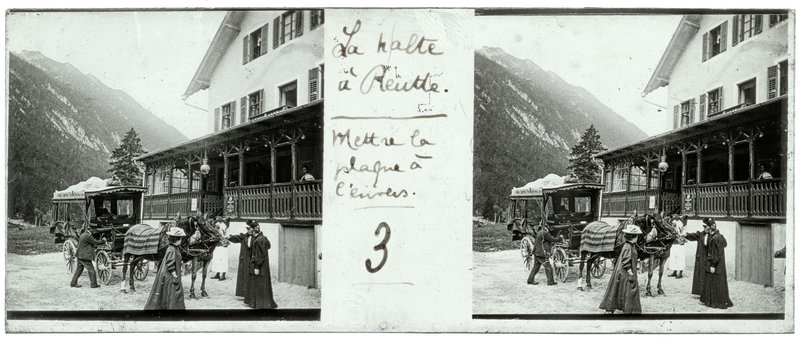 La halte
à Reutte.
Mettre la
plaque à
l'envers.
3